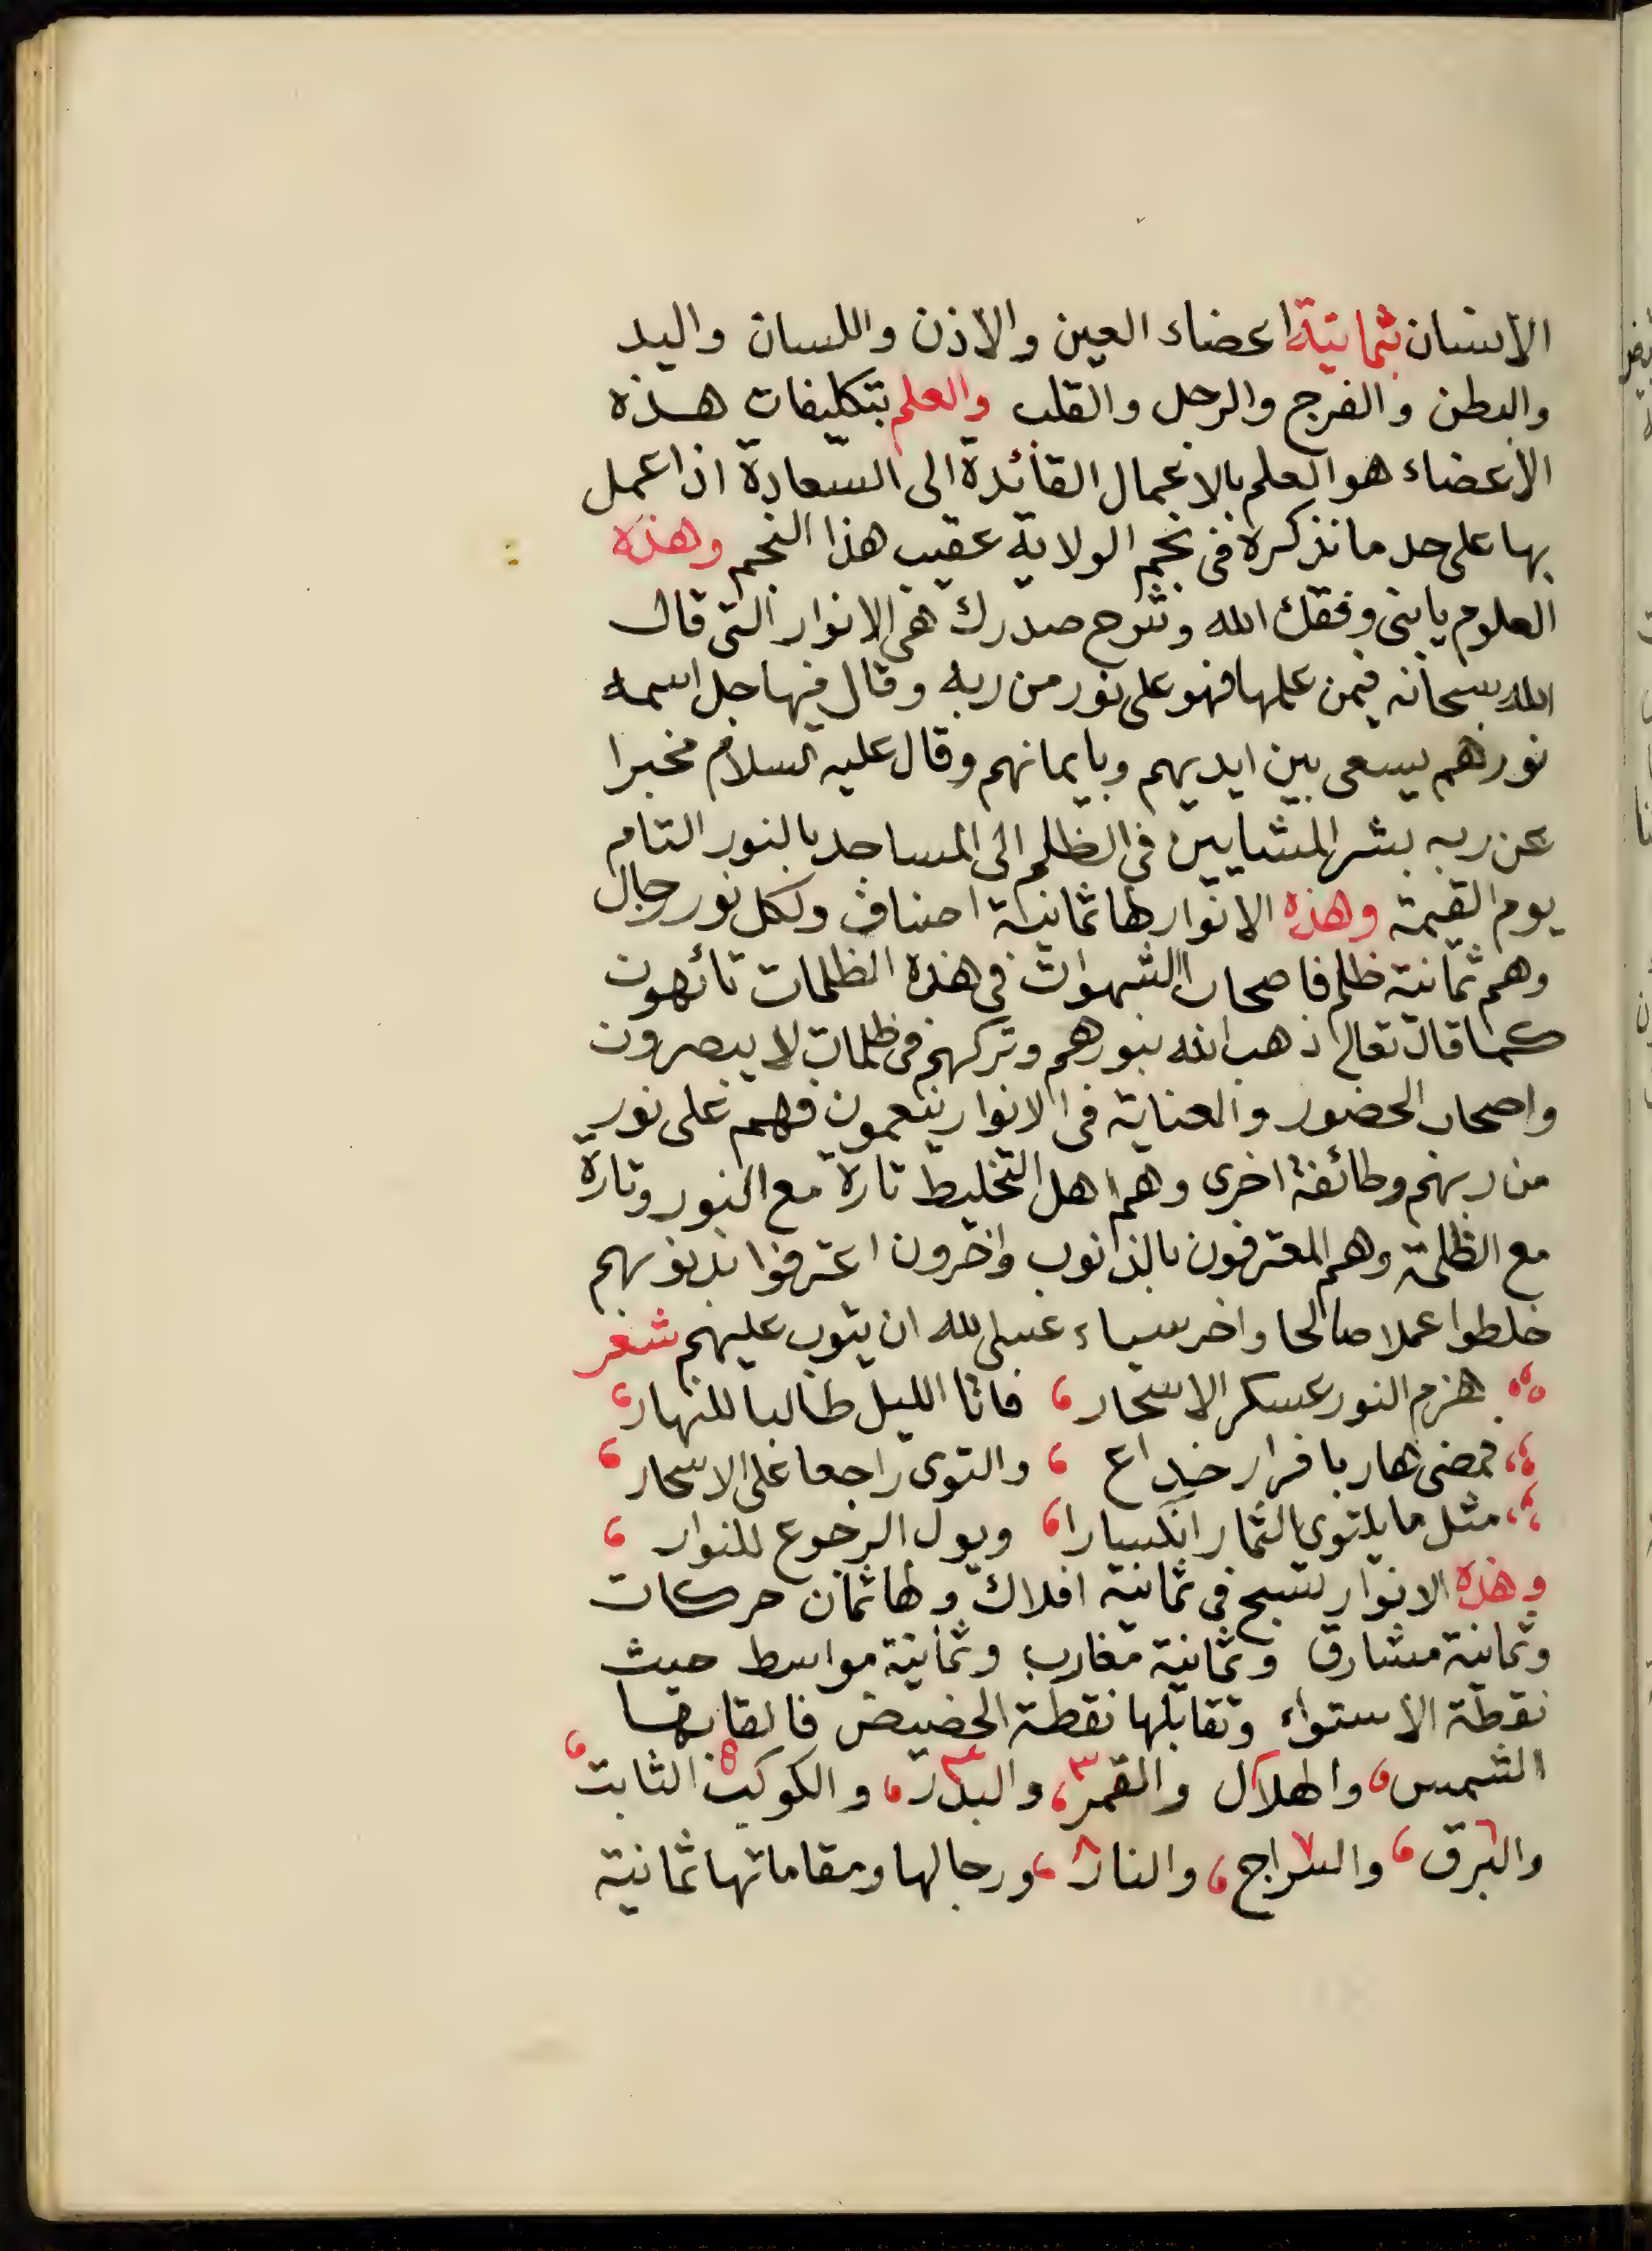 الانسان ثمانية اعضاء العين والاذن واللسان واليد
والبطن والفرج والرجل والقلب والعلم بتكليفات هذه
الأعضاء هو العلم بالاعمال القائدة الى السعادة اذا عمل
بها على حد ما نذكره فى نجم الولاية عقيب هذا النجم وهذه
العلوم يابنى وفقك الله وشرح صدرك هى الانوار التى قال
الله سبحانه فيمن علمها فهو على نور من ربه وقال فيها جل اسمه
نورهم يسعى بين ايديهم وبايمانهم وقال عليه السلام مخبرا
عن ربه بشر المشايين فى الظلم الى المساجد بالنور التام
يوم القيمة وهذه الانوار لها ثمانية اصناف ولكل نور رجال
وهم ثمانية ظلم فاصحاب الشهوات فى هذه الظلمات تائهون
كما قال تعالى ذهب الله بنورهم وتركهم فى ظلمات لا يبصرون
واصحاب الحضور والعناية فى الانوار ينعمون فهم على نور
من ربهم وطائفة اخرى وهم اهل التخليط تارة مع النور وتارة
مع الظلمة وهم المعترفون بالذنوب واخرون اعترفوا بذنوبهم
خلطوا عملا صالحا واخر سياء عسى الله ان يتوب عليهم شعر
هزم النور عسكر الاسحار، فاتا الليل طالبا للنهار،
فمضى هاربا فرار خداع، والتوى راجعا على الاسحار،
مثل ما يلتوى الثمار انكسارا، ويول الرجوع للنوار،
وهذه الانوار تسبح فى ثمانية افلاك ولها ثمان حركات
وثمانية مشارق وثمانية مغارب وثمانية مواسط حيث
نقطة الاستواء وتقابلها نقطة الحضيض فالقابها
الشمس، والهلال والقمر٣، والبدر٤، والكوكب٥ الثابت،
والبرق٦، والسراج٧، والنار٨، ورجالها ومقاماتها ثمانية